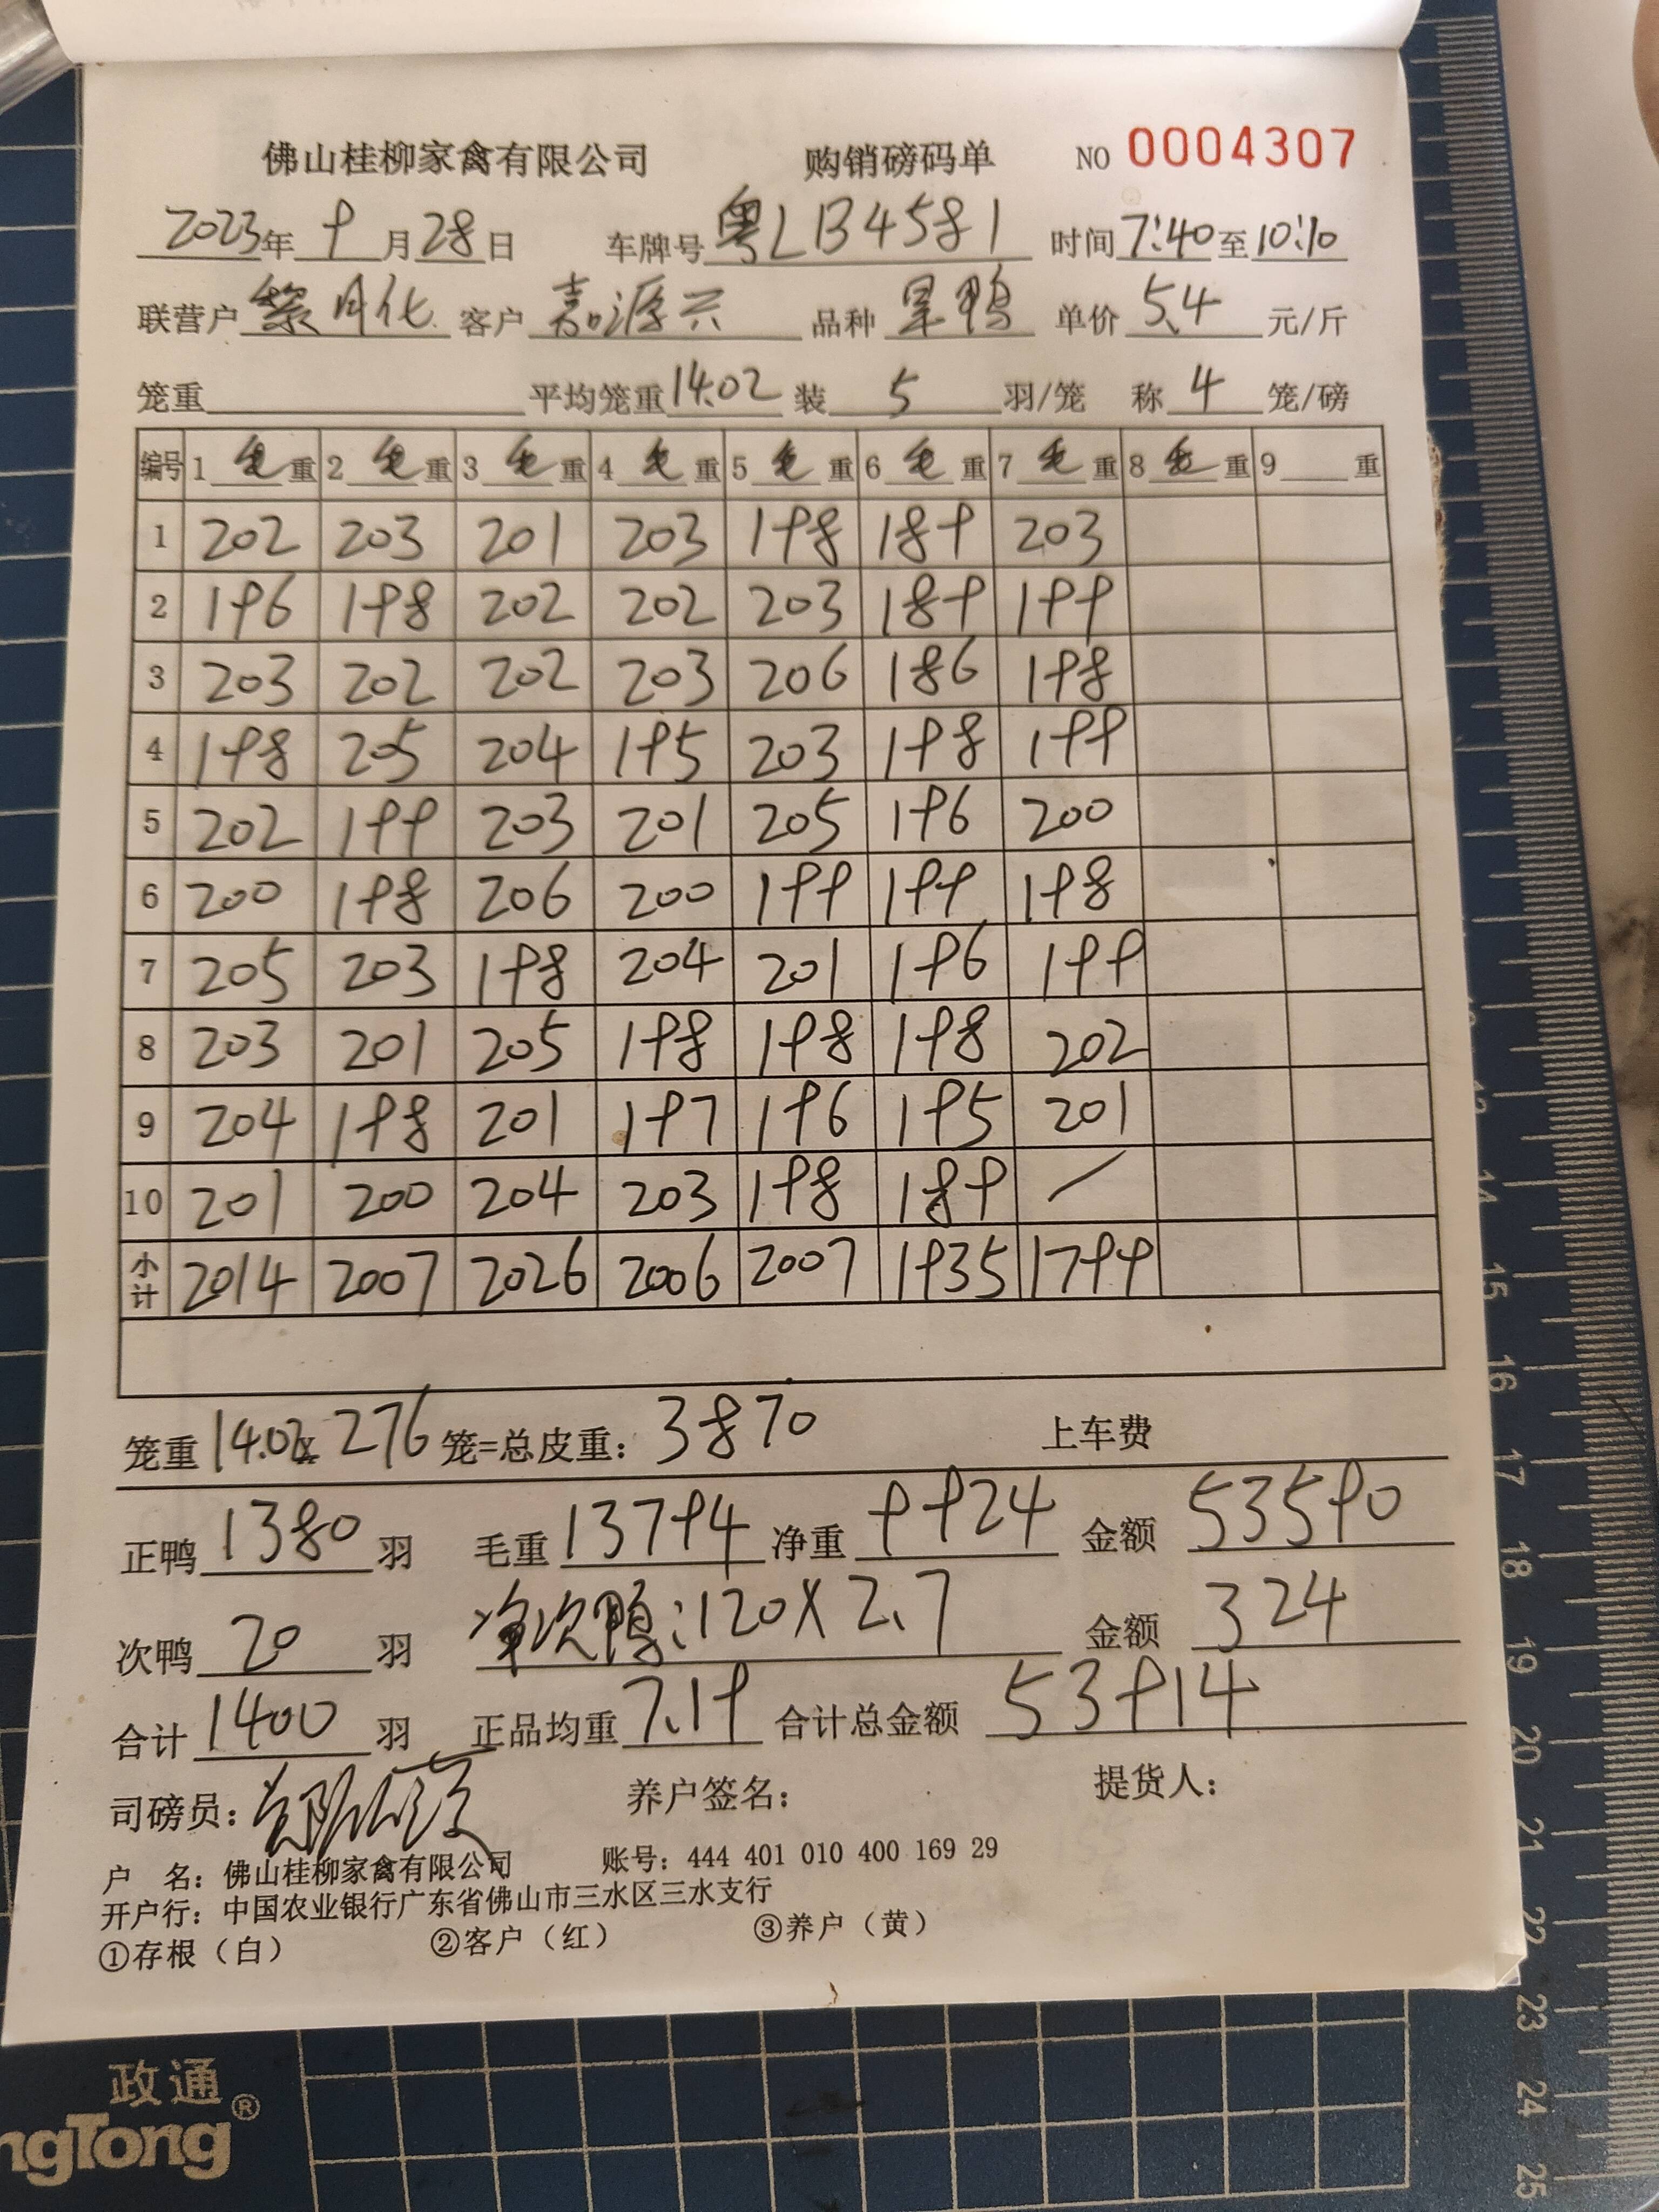 佛山桂柳家禽有限公司 购销磅码单 NO 0004307
2023年 9 月 28 日 车牌号 粤LB4581 时间 7:40 至 10:10
联营户 黎月化 客户 嘉源兴 品种 旱鸭 单价 5.4 元/斤
笼重 平均笼重 14.02 装 5 羽/笼 称 4 笼/磅
编号 1 毛 重 2 毛 重 3 毛 重 4 毛 重 5 毛 重 6 毛 重 7 毛 重 8 毛 重 9 重
1 202 203 201 203 198 189 203
2 196 198 202 202 203 189 199
3 203 202 202 203 206 186 198
4 198 205 204 195 203 198 199
5 202 199 203 201 205 196 200
6 200 198 206 200 199 199 198
7 205 203 198 204 201 196 199
8 203 201 205 198 198 198 202
9 204 198 201 197 196 195 201
10 201 200 204 203 198 189 /
小计 2014 2007 2026 2006 2007 1935 1799
笼重 14.02x 276 笼=总皮重: 3870 上车费
正鸭 1380 羽 毛重 13794 净重 9924 金额 53590
次鸭 20 羽 净次鸭:120X2.7 金额 324
合计 1400 羽 正品均重 7.19 合计总金额 53914
司磅员: 养户签名: 提货人:
户 名: 佛山桂柳家禽有限公司 账号: 444 401 010 400 169 29
开户行: 中国农业银行广东省佛山市三水区三水支行
①存根(白) ②客户(红) ③养户(黄)
政通®
ngTong
14
15
16
17
18
19
20
21
22
23
24
25